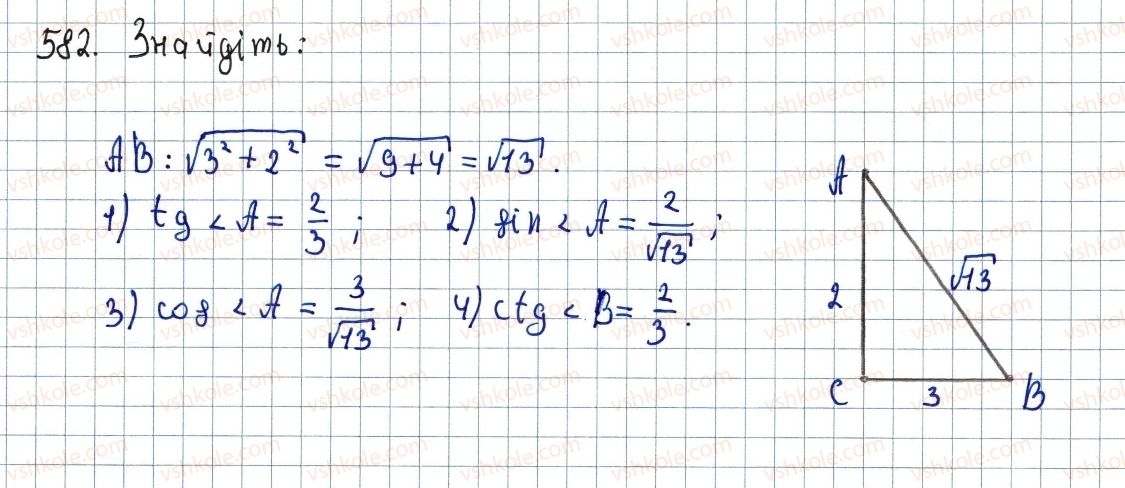 582. Знайдіть:
AB: √(3² + 2²) = √(9+4) = √13.
1) tg < A = 2/3 ; 2) sin < A = 2/√13 ;
3) cos < A = 3/√13 ; 4) ctg < B = 2/3.
A
√13
2
C 3 B
vshkole.com